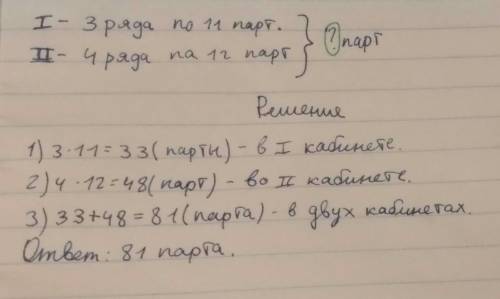 I - 3 ряда по 11 парт.
II - 4 ряда па 12 парт } ? парт
Решение
1) 3·11=33(парты) - в I кабинете.
2) 4·12=48(парт) - во II кабинете.
3) 33+48=81(парта) - в двух кабинетах.
Ответ: 81 парта.